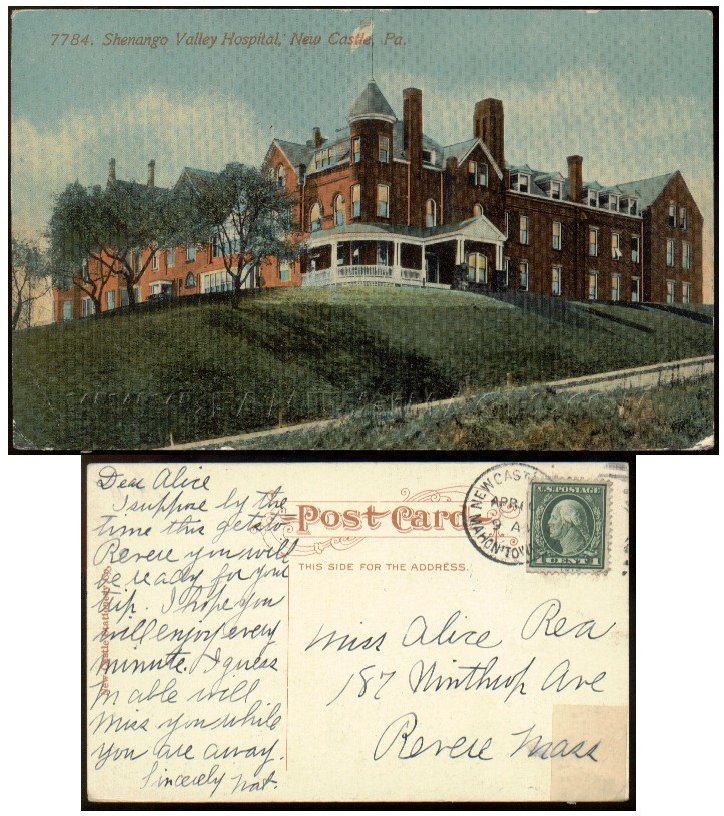 7784. Shenango Valley Hospital, New Castle, Pa.
Dear Alice
I suppose by the
time this gets to
Revere you will
be ready for your
trip. I hope you
will enjoy every
minute. I guess
Mable will
miss you while
you are away.
Sincerely Nat.
Post Card
THIS SIDE FOR THE ADDRESS.
NEW CASTLE
APR
9 A
MAHON'TOWN
U.S. POSTAGE
1 CENT 1
Miss Alice Rea
187 Winthrop Ave
Revere Mass
New Castle